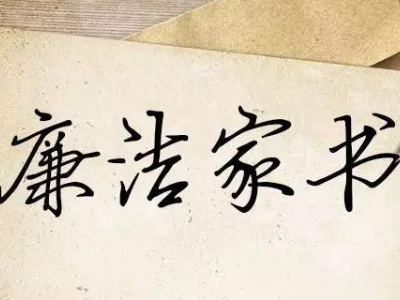 廉洁家书